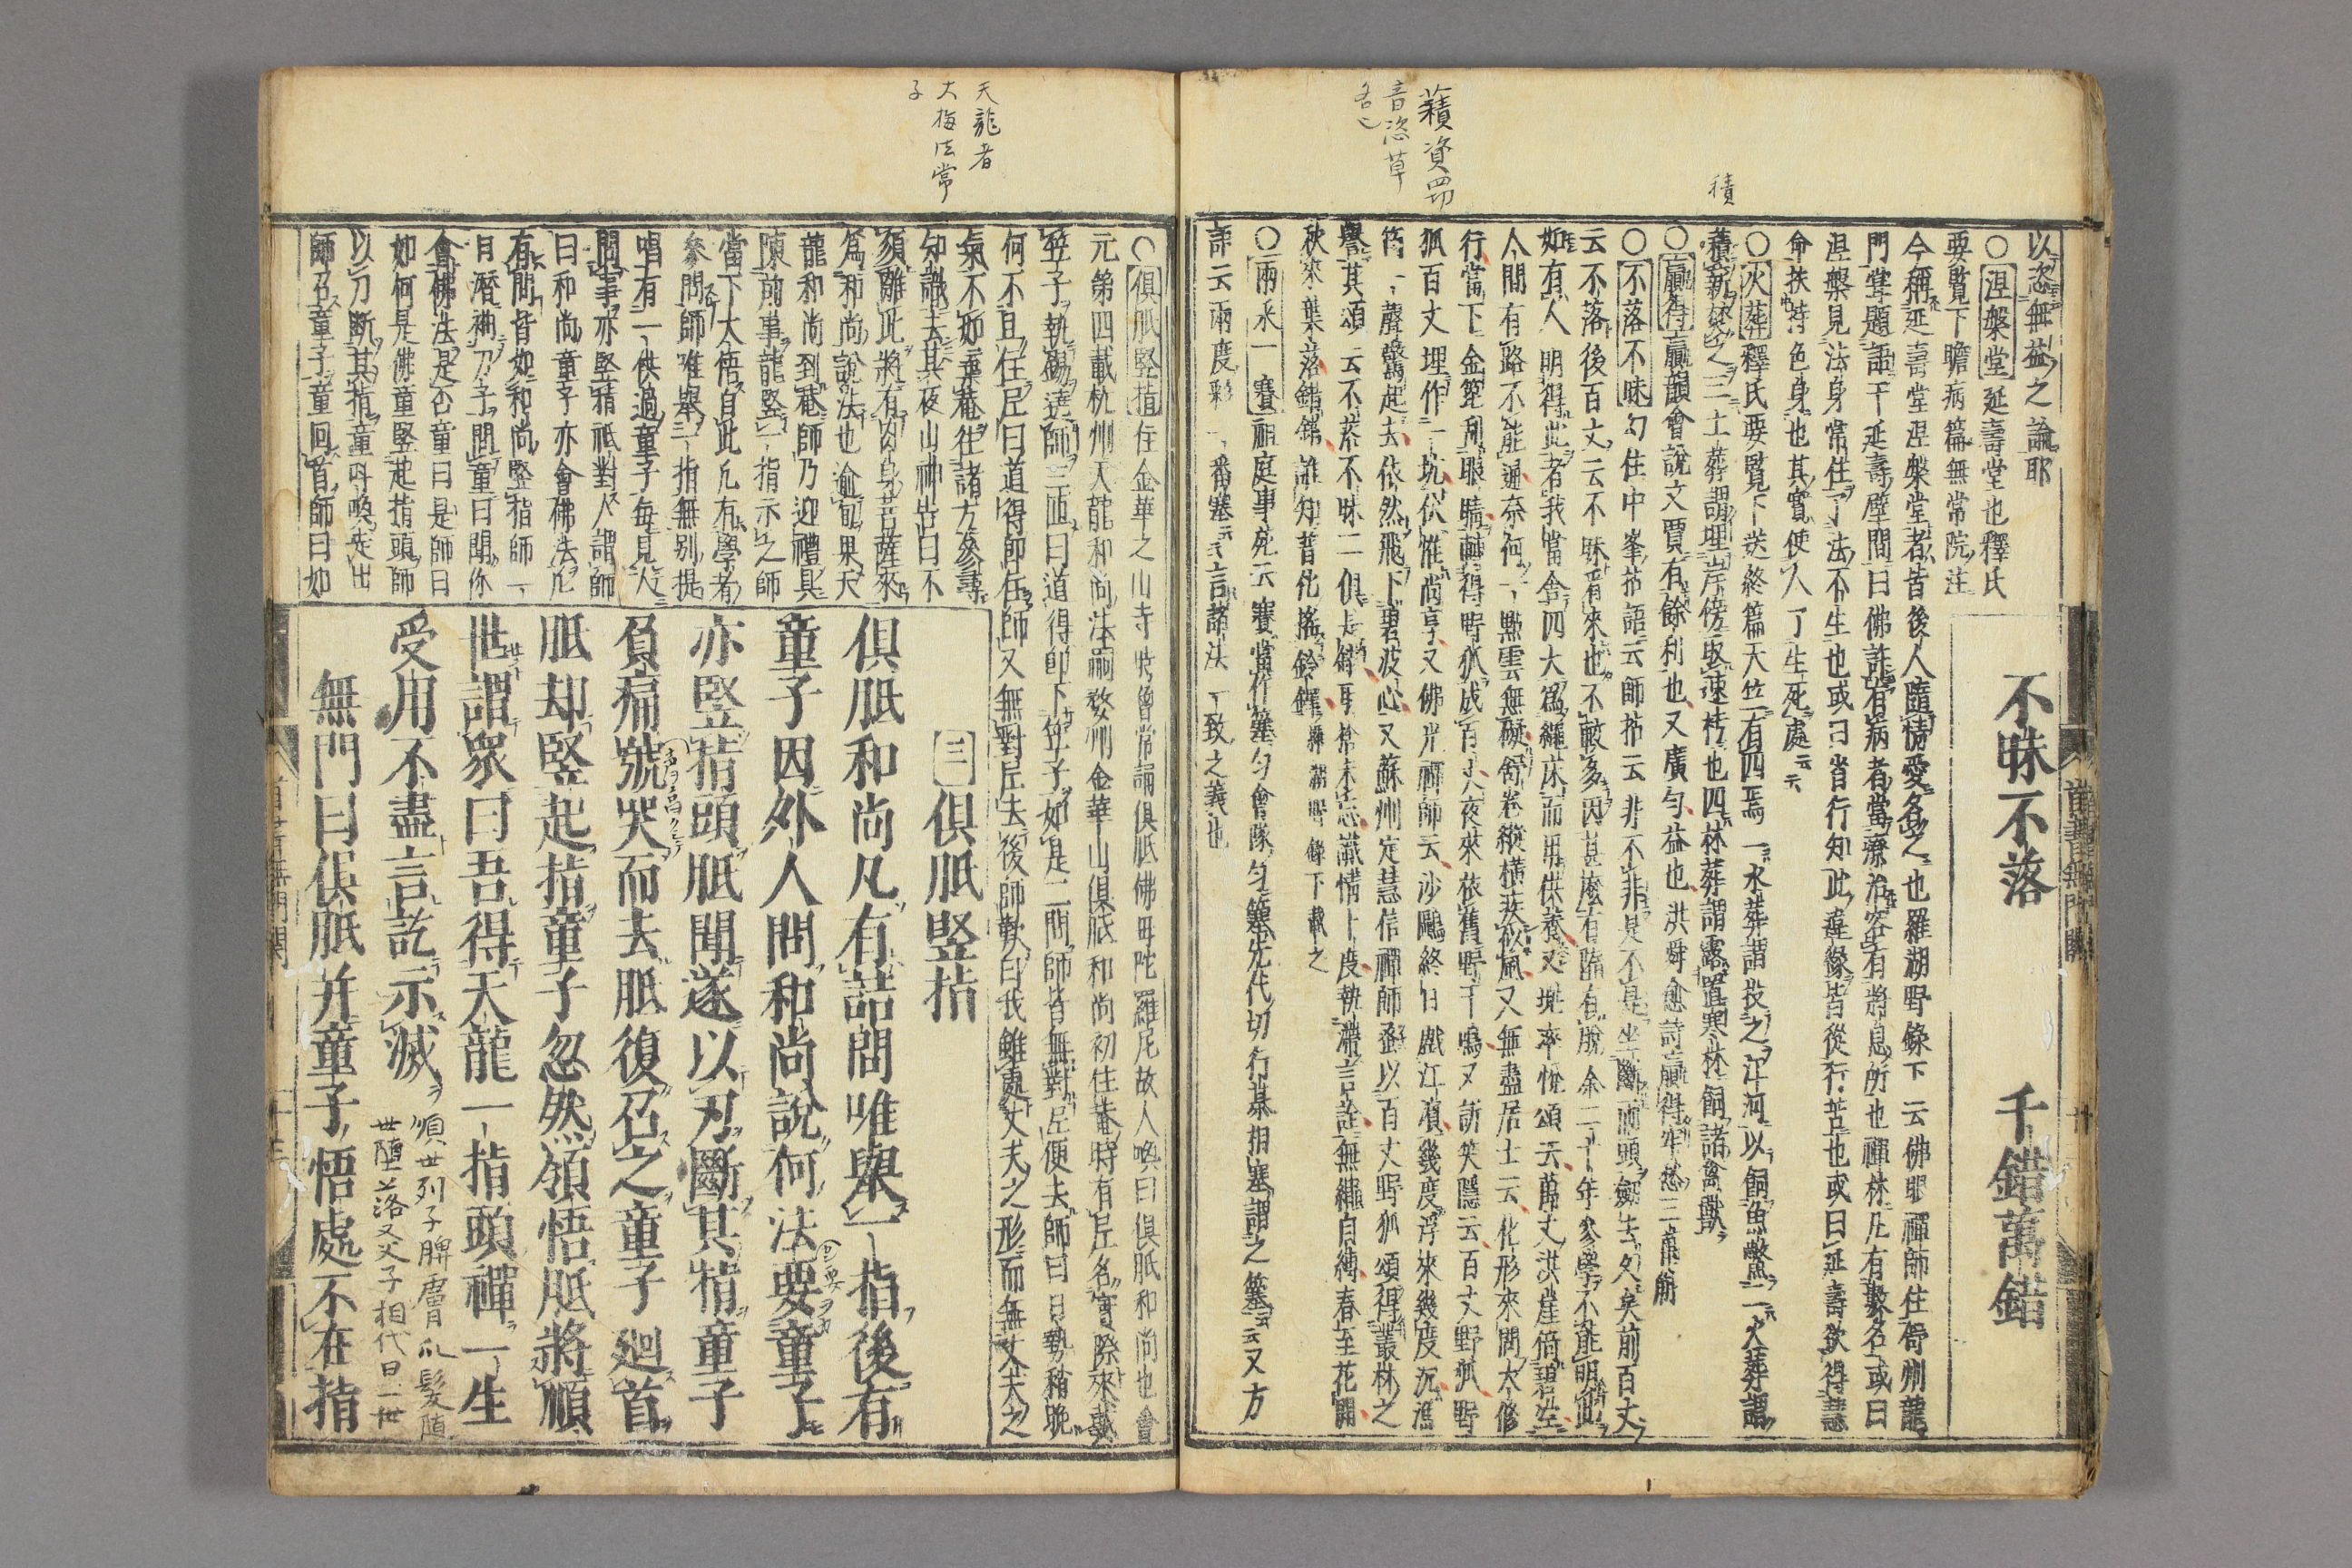 不昧不落　千錯萬錯
以恣無益之論耶
○涅槃堂延壽堂也釋氏
要覽下瞻病篇無常院注
今稱延壽堂涅槃堂者皆後人隨情愛名之也羅湖野錄下云佛眼禪師住舒州龍
門嘗題語于延壽壁間曰佛許有病者當療治容有將息所也禪林凡有數名或曰
涅槃見法身常住了法不生也或曰省行知此違緣皆從行苦也或曰延壽欲得慧
命扶持色身也其實使人了生死處云云
○火葬釋氏要覽下送終篇天竺有四焉一水葬謂投之江河以飼魚鱉二火葬謂
積薪焚之三土葬謂埋岸傍取速朽也四林葬謂露置寒林飼諸禽獸
○贏得贏韻會說文賈有餘利也又廣勻益也洪舜俞詩贏得牢愁三萬斛
○不落不昧幻住中峯拈語云師拈云非不非是不是坐斷兩頭劒去久矣前百丈
云不落後百丈云不昧看來也不較多因甚麼有墮有脫余二十年參學不能明此
如有人明得此者我當舍四大爲繩床而用供養又堪率悅頌云萬丈洪崖倚碧空
人間有路不能通奈何一點雲無礙舒卷縱橫疾似風又無盡居士云化形來問大修
行當下金篦刮眼睛轉得野狐成百丈夜來依舊野干鳴又訢笑隱云百丈野狐野
狐百丈埋作一坑伏惟尚享又佛光禪師云沙鷗終日戲江濱幾度浮來幾度沉
筠一聲驚起去依然飛下碧波心又蘇州定慧信禪師蚤以百丈野狐頌得叢林之
譽其頌云不落不昧二俱是錯取捨未忘識情卜度執滯言詮無繩自縛春至花開
秋來葉落錯錯誰知普化搖鈴鐸
○兩采一賽祖庭事苑云賽當作簺勻會隊勻簺先代切行棊相塞謂之簺云云又方
語云兩度彩一番塞云云言諸法一致之義也
○俱胝竪指住金華之山寺常誦俱胝佛母陀羅尼故人喚曰俱胝和尚也會
元第四載杭州天龍和尚法嗣婺州金華山俱胝和尚初住菴時有尼名實際來戴
笠子執錫遶師三匝曰道得即下笠子如是三問師皆無對尼便去師曰日勢稍晚
何不且住尼曰道得即住師又無對尼去後師歎曰我雖處丈夫之形而無丈夫之
氣不如棄菴往諸方參尋
知識去其夜山神告曰不
須離此將有肉身菩薩來
爲和尚說法也逾旬果天
龍和尚到菴師乃迎禮具
陳前事龍竪一指示之師
當下大悟自此凡有學者
參問師唯舉一指無別提
唱有一供過童子每見人
問事亦竪指祇對人謂師
曰和尚童子亦會佛法凡
有問皆如和尚竪指師一
日潛袖刀子問童曰聞你
會佛法是否童曰是師曰
如何是佛童竪起指頭師
以刀斷其指童叫喚走出
師召童子童回首師曰如
三俱胝竪指
俱胝和尚凡有詰問唯舉一指後有
童子因外人問和尚說何法要童子
亦竪指頭胝聞遂以刃斷其指童子
負痛號哭而去胝復召之童子迴首
胝却竪起指童子忽然領悟胝將順
世謂衆曰吾得天龍一指頭禪一生
受用不盡言訖示滅
無門曰俱胝并童子悟處不在指
積
藉資四切
音恣草
名也
天龍者
大梅法常
子
順世列子脾膚爪髮隨
世墮落又父子相代曰一世
首書無門關